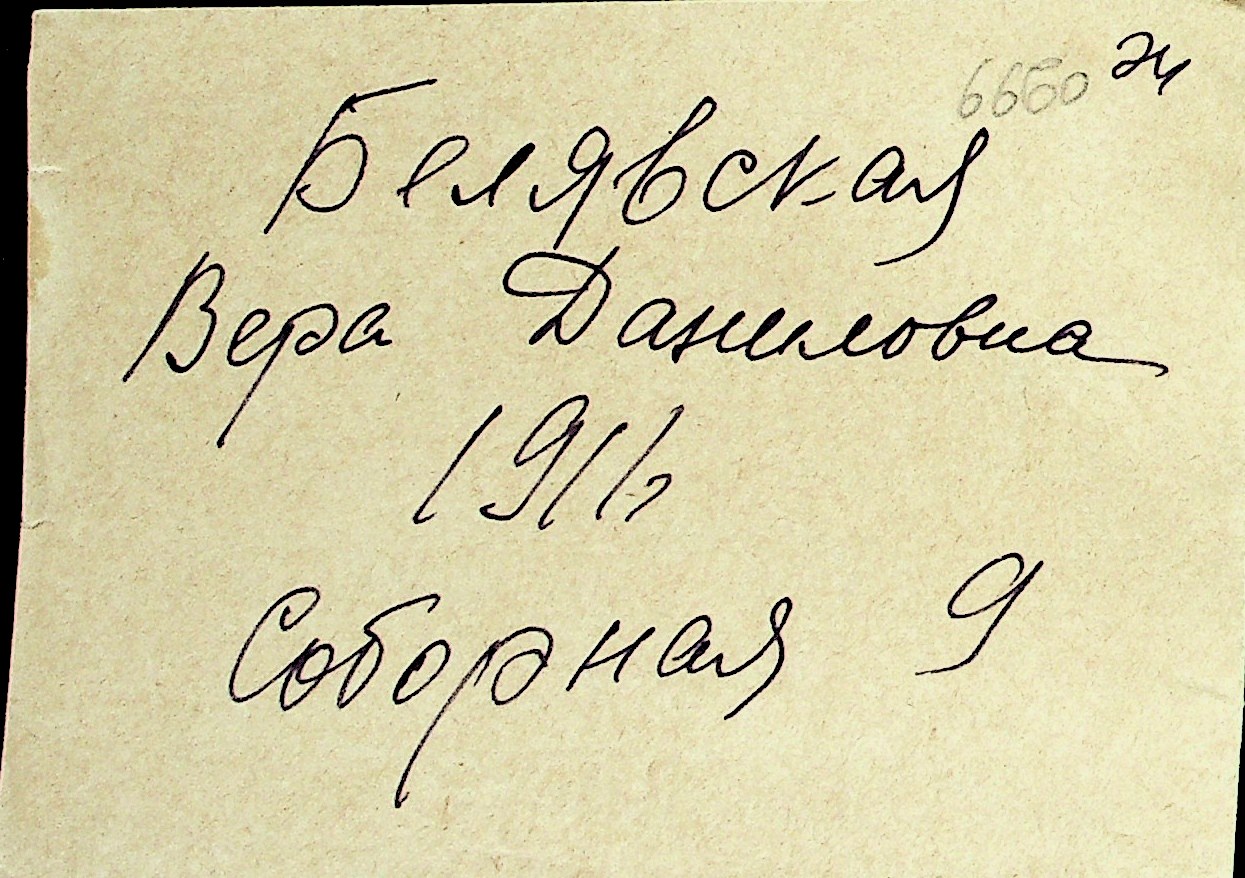 6660
Белявская
Вера Даниловна
Соборная 9